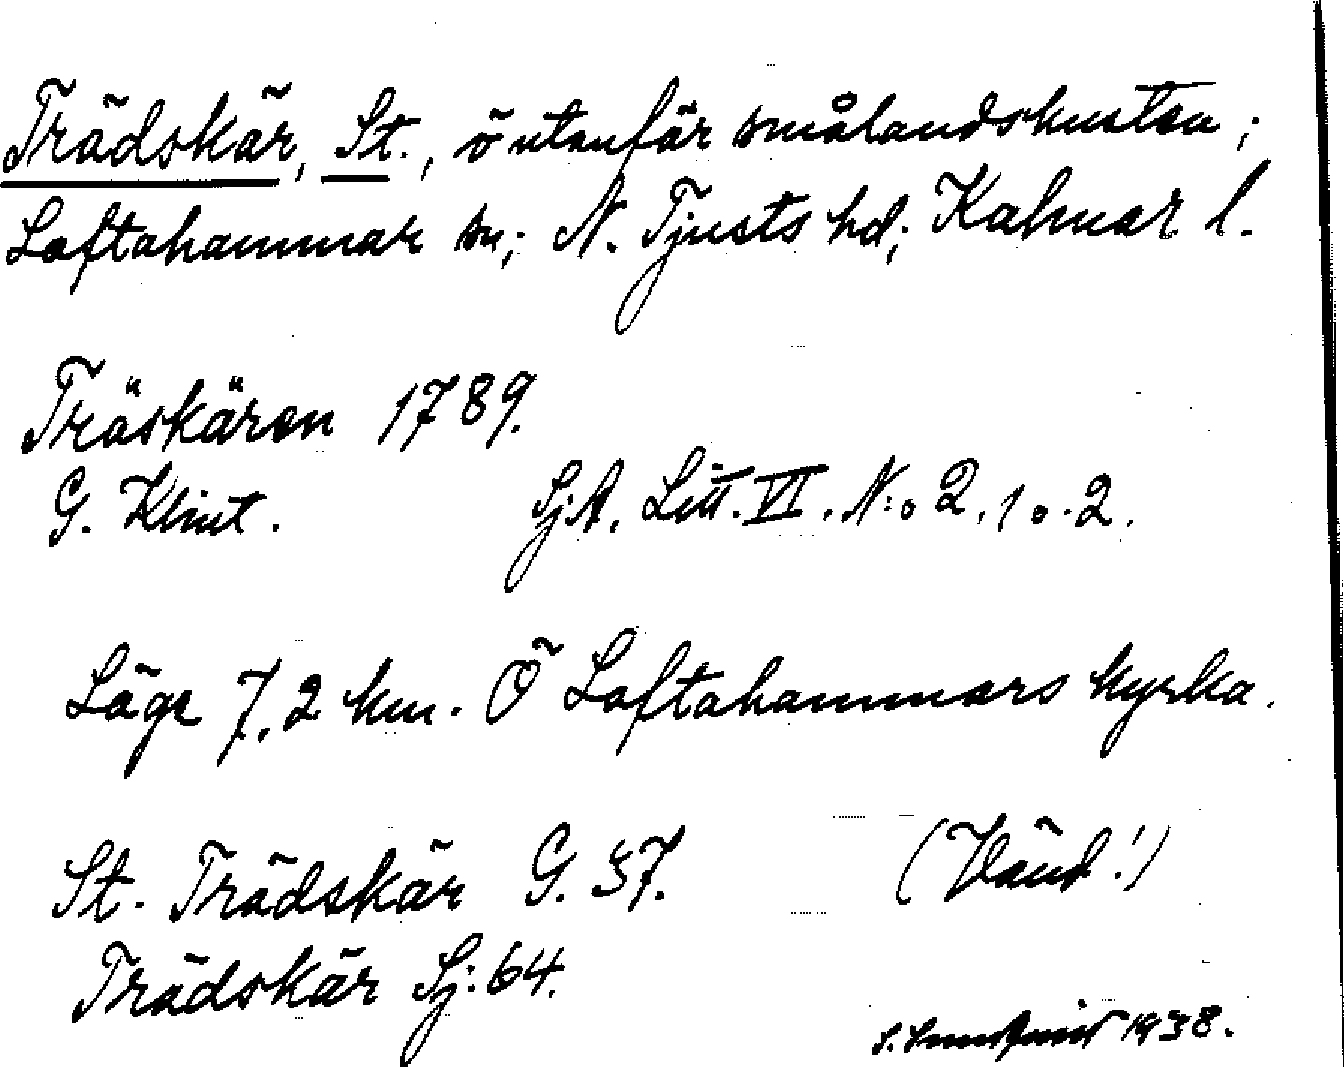 Trädskär, St., ö utanför smålandskusten;
Loftahammar sn; N. Tjusts hd; Kalmar l.
Träskären 1789.
G. Klint. Sj.A. Litt. VI. N:o 2, 1 o. 2.
Läge 7,2 km. Ö Loftahammars kyrka.
St. Trädskär G. 37. (Vänd!)
Trädskär Sj: 64.
S. 1938.